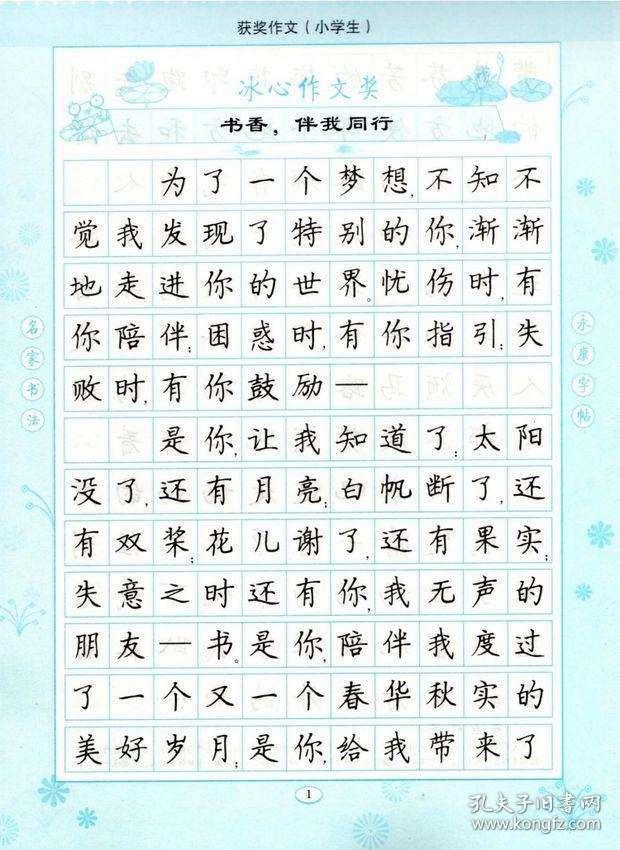 获奖作文（小学生）
冰心作文奖
书香，伴我同行
为了一个梦想,不知不
觉我发现了特别的你,渐渐
地走进你的世界。忧伤时,有
你陪伴;困惑时,有你指引;失
败时,有你鼓励—
是你,让我知道了:太阳
没了,还有月亮;白帆断了,还
有双桨;花儿谢了,还有果实;
失意之时还有你,我无声的
朋友—书。是你,陪伴我度过
了一个又一个春华秋实的
美好岁月;是你,给我带来了
名家书法
永康字帖
1
孔夫子旧书网
www.kongfz.com